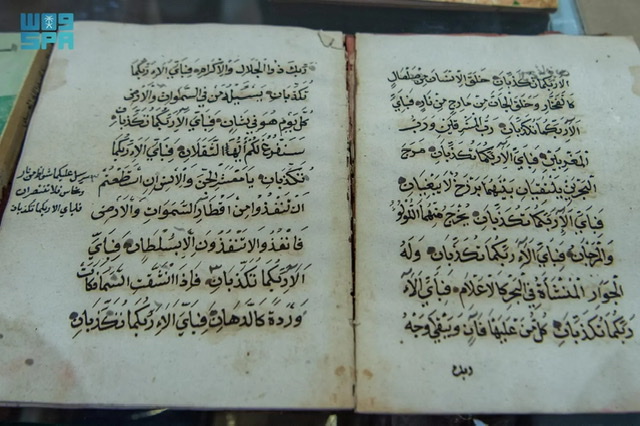 واس
SPA
الآء ربكما تكذبان خلق الانسان من صلصال
كالفخار وخلق الجان من مارج من نار فباي
الآء ربكما تكذبان رب المشرقين ورب
المغربين فباي الآء ربكما تكذبان مرج
البحرين يلتقيان بينهما برزخ لا يبغيان
فباي الآء ربكما تكذبان يخرج منهما اللؤلؤ
والمرجان فباي الآء ربكما تكذبان وله
الجوار المنشأة في البحر كالاعلام فباي الآء
ربكما تكذبان كل من عليها فان ويبقى وجه
ربك
ربك ذو الجلال والاكرام فباي الآء ربكما
تكذبان يسئله من في السموات والارض
كل يوم هو في شان فباي الآء ربكما تكذبان
سنفرغ لكم أيها الثقلان فباي الآء ربكما
تكذبان يا معشر الجن والانس ان استطعتم
ان تنفذوا من اقطار السموات والارض
فانفذوا لا تنفذون الا بسلطان فباي
الآء ربكما تكذبان فاذا انشقت السماء فكانت
وردة كالدهان فباي الآء ربكما تكذبان
يرسل عليكما شواظ من نار
ونحاس فلا تنتصران
فباي الآء ربكما تكذبان